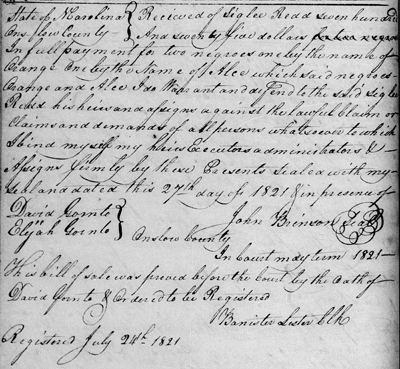 State of N Carolina } Recieved of Sigler Redd seven hundred
Onslow County } And seventy five dollars
In full payment for two negroes one by the name of
Orange One by the Name of Alce which said negroes
Orange and Alce I do Warrant and defend to the said Sigler
Redd his heirs and assigns against the lawful Claim or
Claims and demands of all persons whatsoever to which
I bind myself my heirs Executors administrators &
Assigns firmly by these Presents sealed with my
seal and dated this 27th day of 1821 & in presence of
David Gornto } John Brinson Seal
Elijah Gornto }
Onslow County
In Court may term 1821
This bill of sale was proved before the Court by the Oath of
David Gornto & Ordered to be Registered
Banister Lester Clk
Registered July 24th 1821